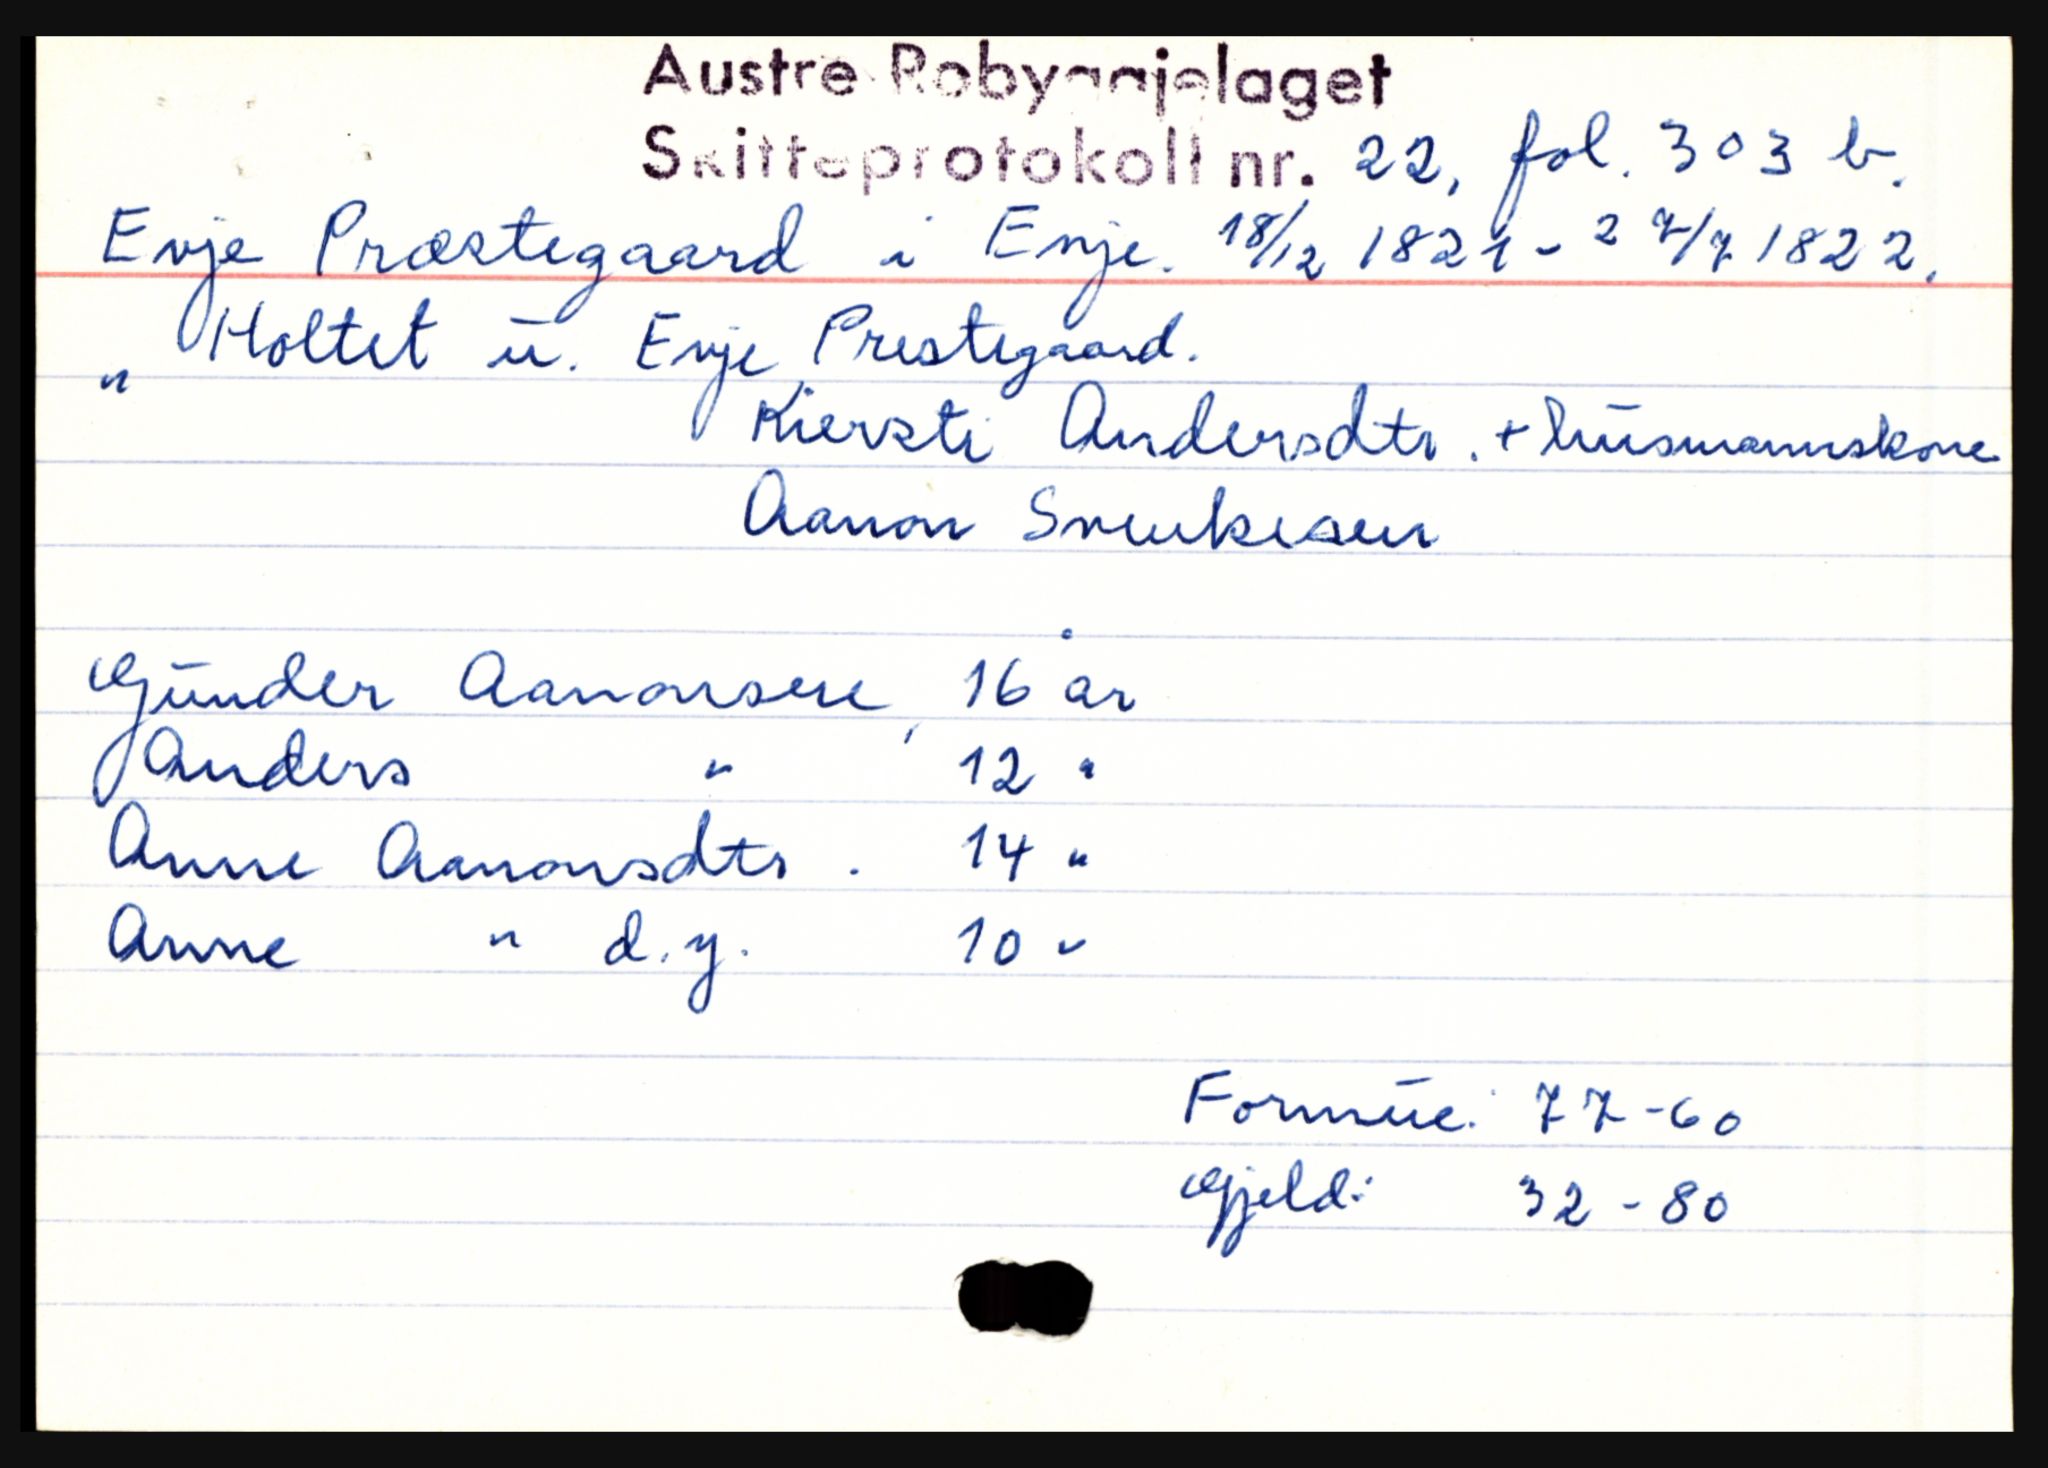 Austre Robyggjelaget
Skifteprotokoll nr. 22, fol. 303 b.
Evje Præstegaard i Evje. 18/12 1821 - 27/7 1822.
" Holtet u. Evje Prestegaard.
Kiersti Andersdtr. + husmannskone
Aanon Svenkesen
Gunder Aanonsen, 16 år
Anders " 12 "
Anne Aanonsdtr. 14 "
Anne " d.y. 10 "
Formue: 77-60
Gjeld: 32-80